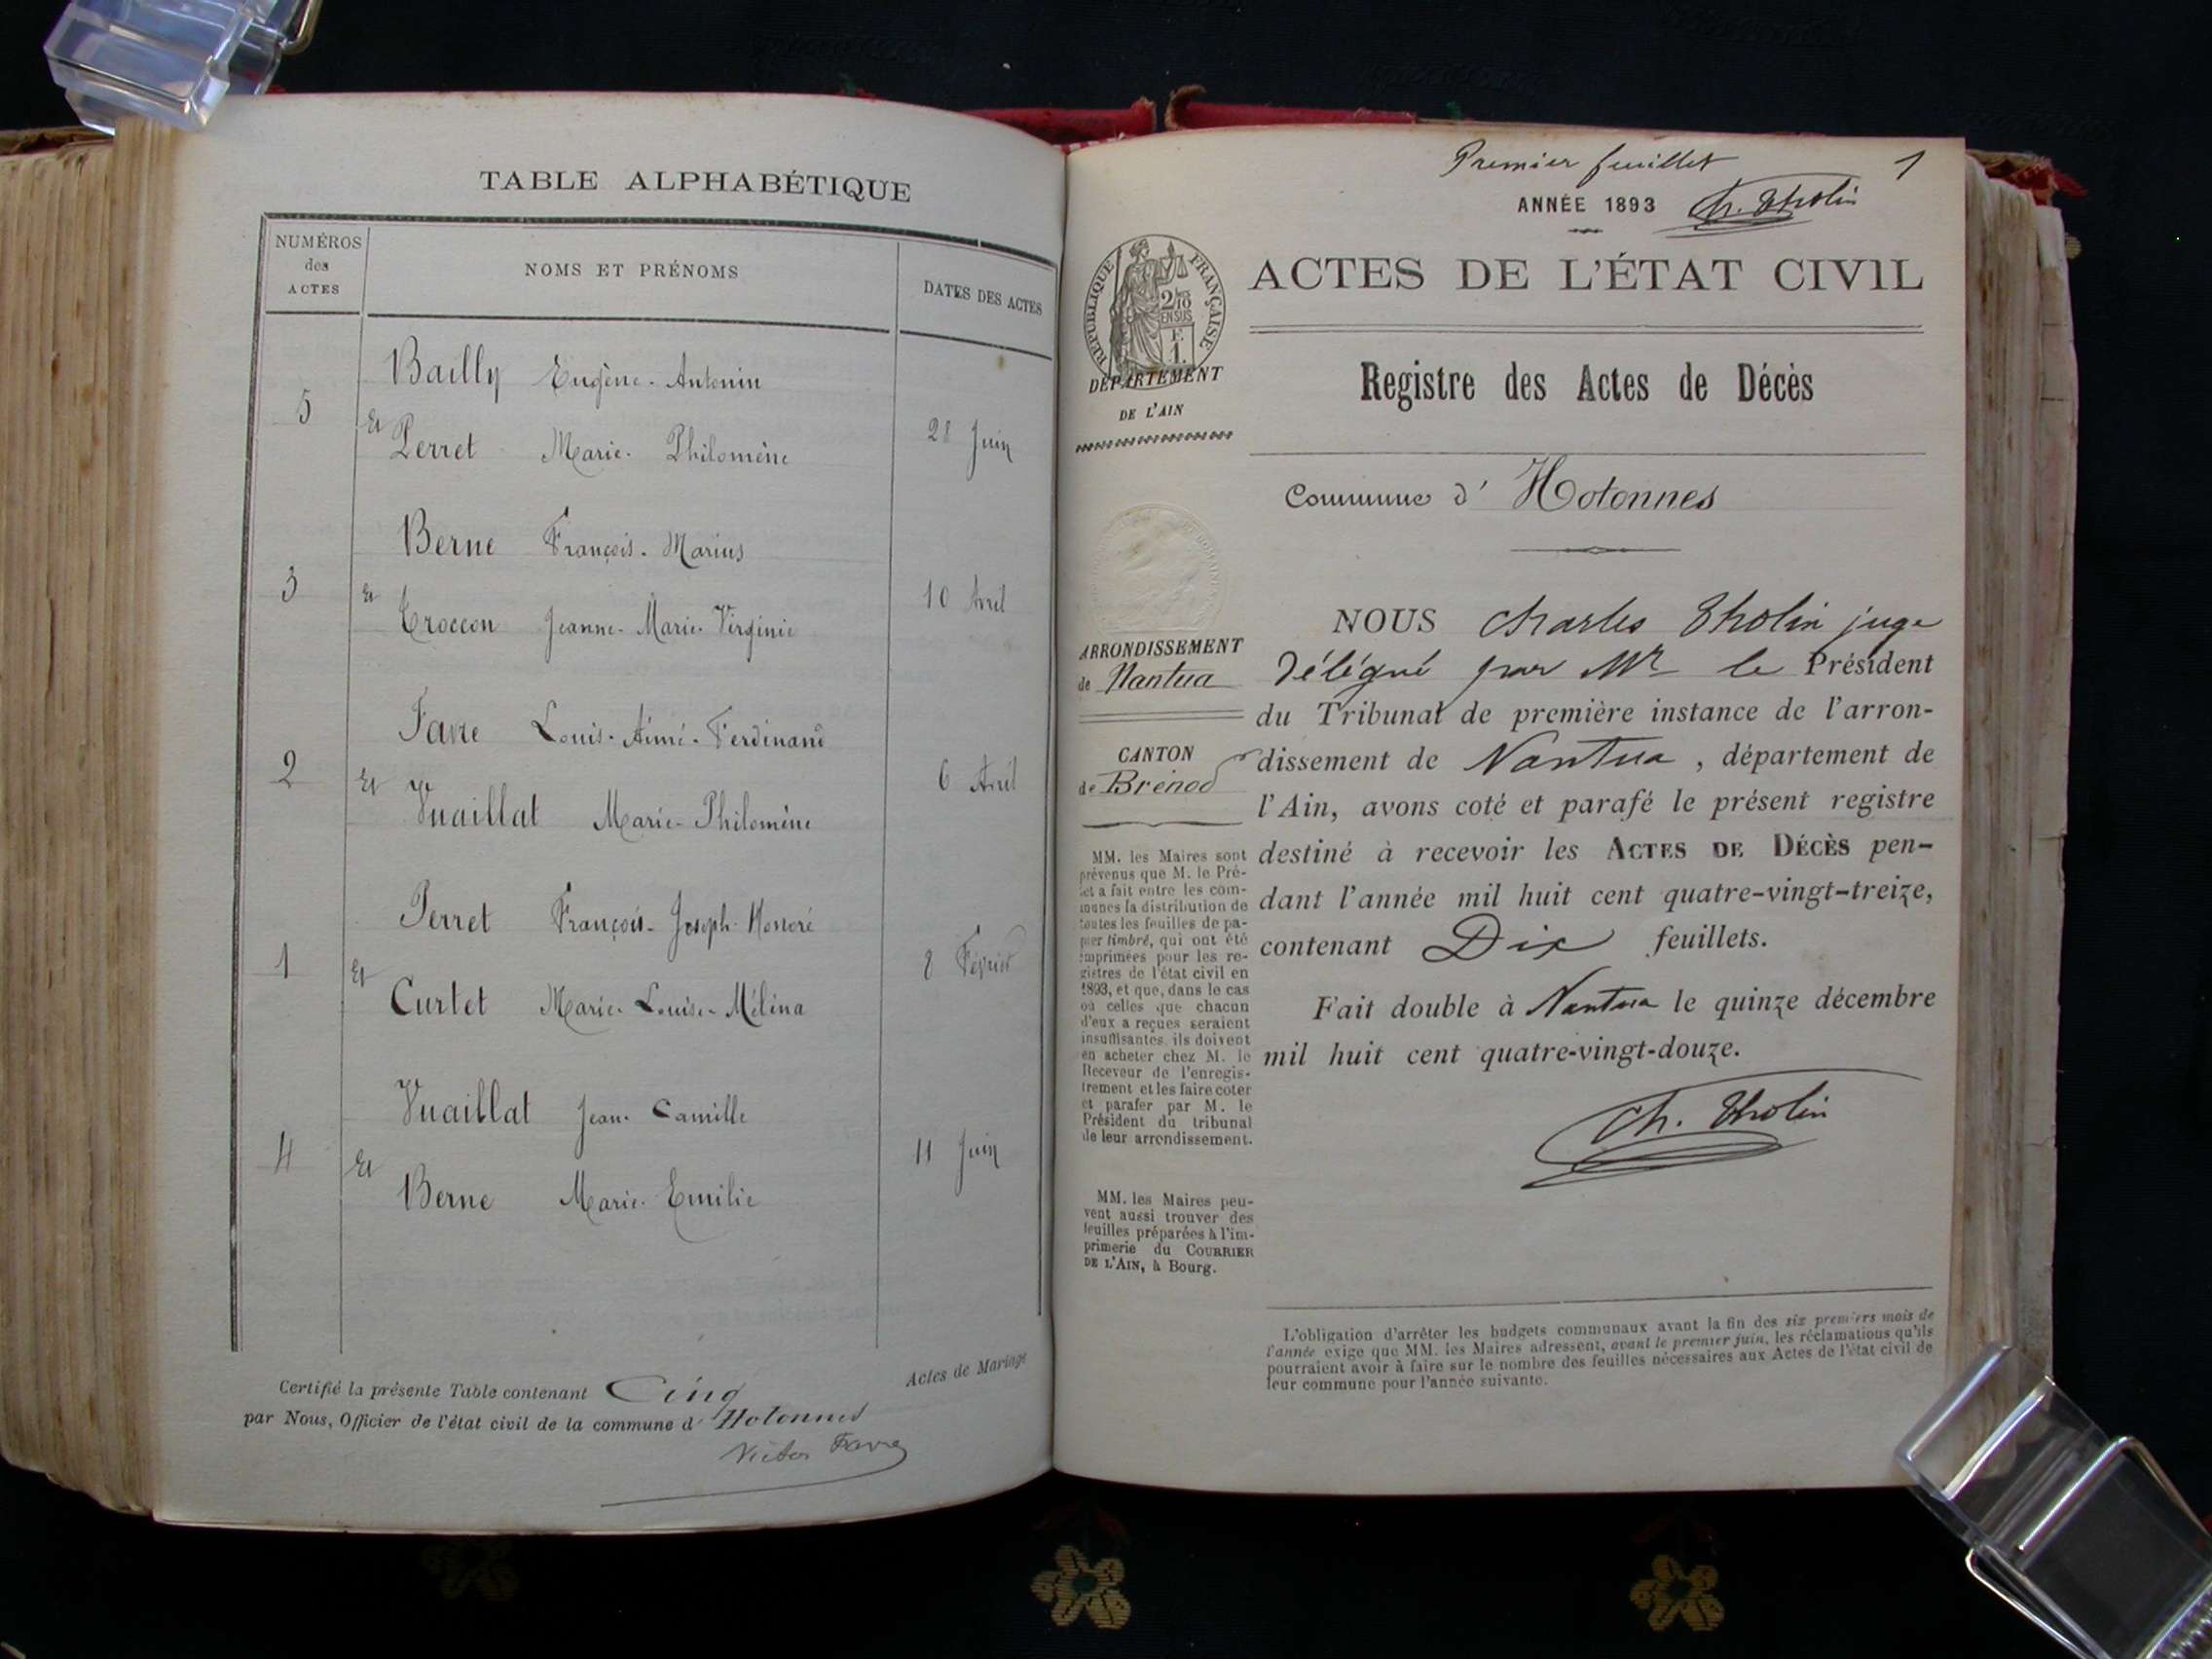 TABLE ALPHABÉTIQUE
NUMÉROS
des
ACTES
NOMS ET PRÉNOMS
DATES DES ACTES
Bailly Eugène-Antonin
5 Et 28 Juin
Perret Marie-Philomène
Berne François-Marius
3 Et 10 Avril
Croccon Jeanne-Marie-Virginie
Favre Louis-Aimé-Ferdinand
2 Et 6 Avril
Vuaillat Marie-Philomène
Perret François-Joseph-Honoré
1 Et 8 Février
Curtet Marie-Louise-Mélina
Vuaillat Jean-Camille
4 Et 11 Juin
Berne Marie-Emilie
Certifié la présente Table contenant Cinq Actes de Mariage
par Nous, Officier de l'état civil de la commune d'Hotonnes
Victor Favre
Premier feuillet 1
ANNÉE 1893 Ch. Tholin
RÉPUBLIQUE FRANÇAISE
2/10
EN SUS
F.
1.
ACTES DE L'ÉTAT CIVIL
DÉPARTEMENT
DE L'AIN
Registre des Actes de Décès
Commune d' Hotonnes
ARRONDISSEMENT
de Nantua
CANTON
de Brénod
MM. les Maires sont
prévenus que M. le Pré-
fet a fait entre les com-
munes la distribution de
toutes les feuilles de pa-
pier timbré, qui ont été
imprimées pour les re-
gistres de l'état civil en
1893, et que, dans le cas
où celles que chacun
d'eux a reçues seraient
insuffisantes, ils doivent
en acheter chez M. le
Receveur de l'enregis-
trement et les faire coter
et parafer par M. le
Président du tribunal
de leur arrondissement.
MM. les Maires peu-
vent aussi trouver des
feuilles préparées à l'im-
primerie du COURRIER
DE L'AIN, à Bourg.
NOUS Charles Tholin juge
délégué par Mr le Président
du Tribunal de première instance de l'arron-
dissement de Nantua, département de
l'Ain, avons coté et parafé le présent registre
destiné à recevoir les ACTES DE DÉCÈS pen-
dant l'année mil huit cent quatre-vingt-treize,
contenant Dix feuillets.
Fait double à Nantua le quinze décembre
mil huit cent quatre-vingt-douze.
Ch. Tholin
L'obligation d'arrêter les budgets communaux avant la fin des six premiers mois de
l'année exige que MM. les Maires adressent, avant le premier juin, les réclamations qu'ils
pourraient avoir à faire sur le nombre des feuilles nécessaires aux Actes de l'état civil de
leur commune pour l'année suivante.